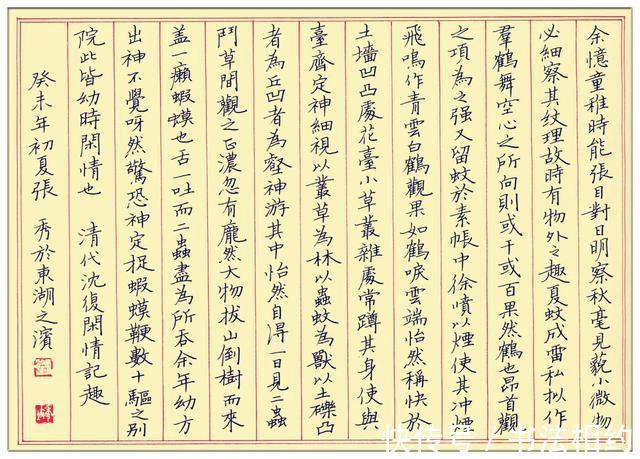 余憶童稚時能張目對日明察秋毫見藐小微物
必細察其紋理故時有物外之趣夏蚊成雷私擬作
羣鶴舞空心之所向則或千或百果然鶴也昂首觀
之項為之强又留蚊於素帳中徐噴以煙使其冲煙
飛鳴作青雲白鶴觀果如鶴唳雲端怡然稱快於
土墻凹凸處花臺小草叢雜處常蹲其身使與
臺齊定神細視以叢草為林以蟲蚊為獸以土礫凸
者為丘凹者為壑神游其中怡然自得一日見二蟲
鬥草間觀之正濃忽有龐然大物拔山倒樹而來
盖一癩蝦蟆也舌一吐而二蟲盡為所吞余年幼方
出神不覺呀然驚恐神定捉蝦蟆鞭數十驅之別
院此皆幼時閑情也 清代沈復閑情記趣
癸未年初夏張 秀於東湖之濱
快传号/书法相约